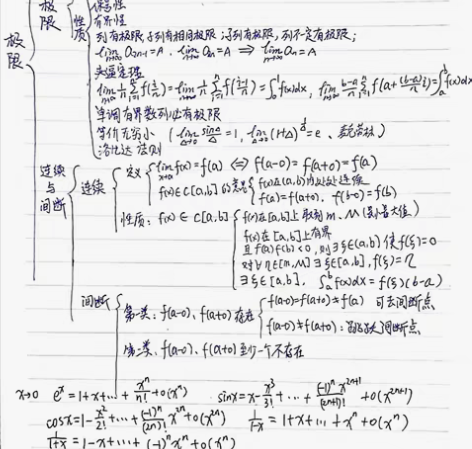 极限
极限
性质
保号性
有界性
列有极限,子列有相同极限;子列有极限,列不一定有极限;
lim_{n→∞} a_{2n-1}=A, lim_{n→∞} a_{2n}=A ⇒ lim_{n→∞} a_n=A
夹逼定理
lim_{n→∞} 1/n Σ_{i=1}^{n} f(i/n)=lim_{n→∞} 1/n Σ_{i=1}^{n} f(i-1/n)=∫_0^1 f(x)dx, lim_{n→∞} b-a/n Σ_{i=1}^{n} f(a+(b-a)i/n)=∫_a^b f(x)dx
单调有界数列必有极限
等价无穷小 (lim_{Δ→0} sinΔ/Δ=1, lim_{Δ→0}(1+Δ)^{1/Δ}=e、麦克劳林)
洛比达法则
连续与间断
连续
定义
lim_{x→a} f(x)=f(a) ⇔ f(a-0)=f(a+0)=f(a)
f(x)∈C[a,b]的
f(x)在(a,b)内处处连续
f(a)=f(a+0), f(b-0)=f(b)
性质: f(x)∈C[a,b]
f(x)在[a,b]上取到m、M(最小最大值)
f(x)在[a,b]上有界
且f(a)f(b)<0,则∃ξ∈(a,b)使f(ξ)=0
对∀η∈[m,M]∃ξ∈[a,b],f(ξ)=η
∃ξ∈[a,b], ∫_a^b f(x)dx=f(ξ)(b-a)
间断
第一类: f(a-0)、f(a+0)存在
f(a-0)=f(a+0)≠f(a) 可去间断点
f(a-0)≠f(a+0): 跳跃间断点
第二类、f(a-0)、f(a+0)至少一个不存在
x→0 e^x=1+x+…+x^n/n!+o(x^n) sinx=x-x^3/3!+…+(-1)^n x^{2n+1}/(2n+1)!+o(x^{2n+1})
cosx=1-x^2/2!+…+(-1)^n/(2n)! x^{2n}+o(x^{2n}) 1/1-x=1+x+…+x^n+o(x^n)
1/1+x=1-x+…+(-1)^n x^n+o(x^n)